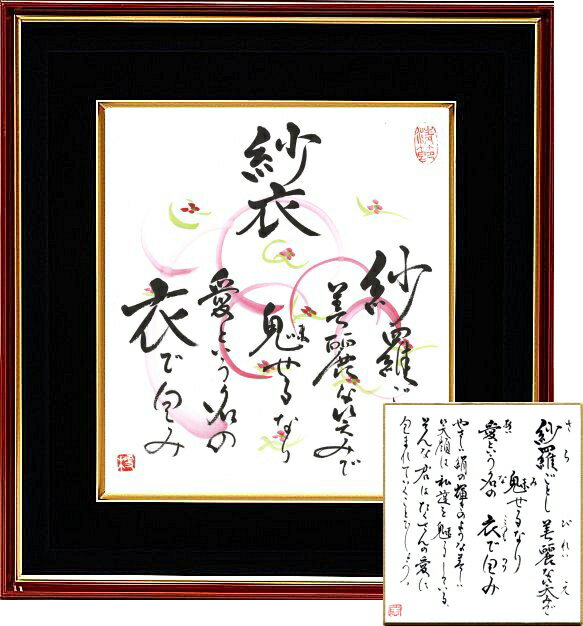 紗衣
紗羅ご
美麗な笑みで
魅せるなり
愛という名の
衣で包み
紗羅ごとし 美麗な笑みで
魅せるなり
愛という名の 衣で包み
輝きのような美しい
笑顔に私達を魅了している。
そんな君はたくさんの愛に
包まれていくことでしょう。